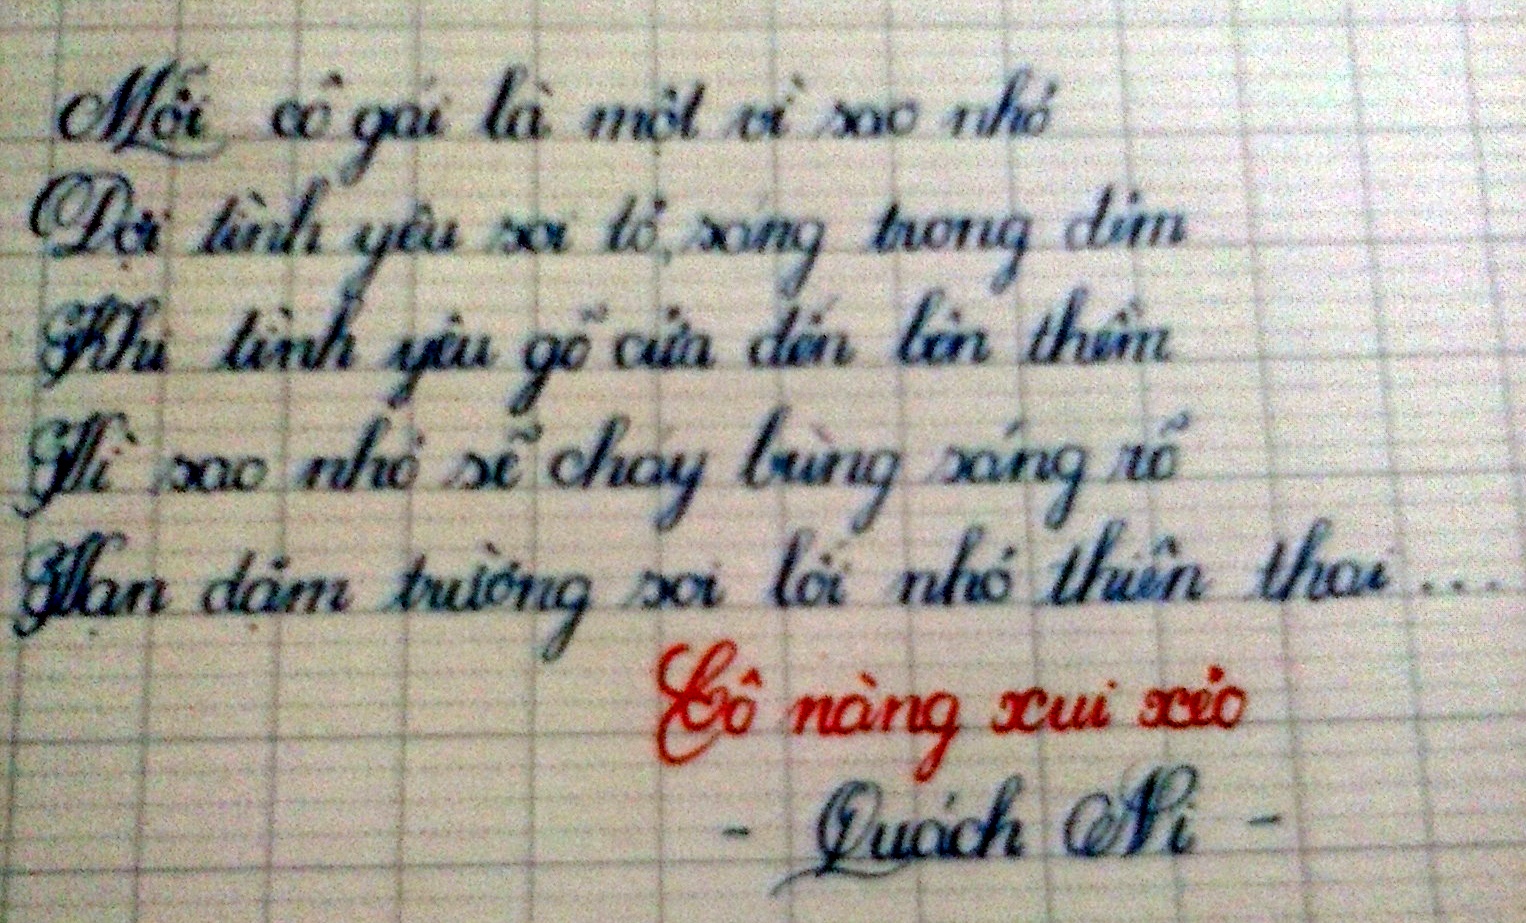 Mỗi cô gái là một vì sao nhỏ
Đợi tình yêu soi tỏ, sáng trong đêm
Khi tình yêu gõ cửa đến bên thềm
Vì sao nhỏ sẽ cháy bùng sáng rõ
Vạn dặm trường soi lối nhỏ thiên thai...
Cô nàng xui xẻo
- Quách Ni -